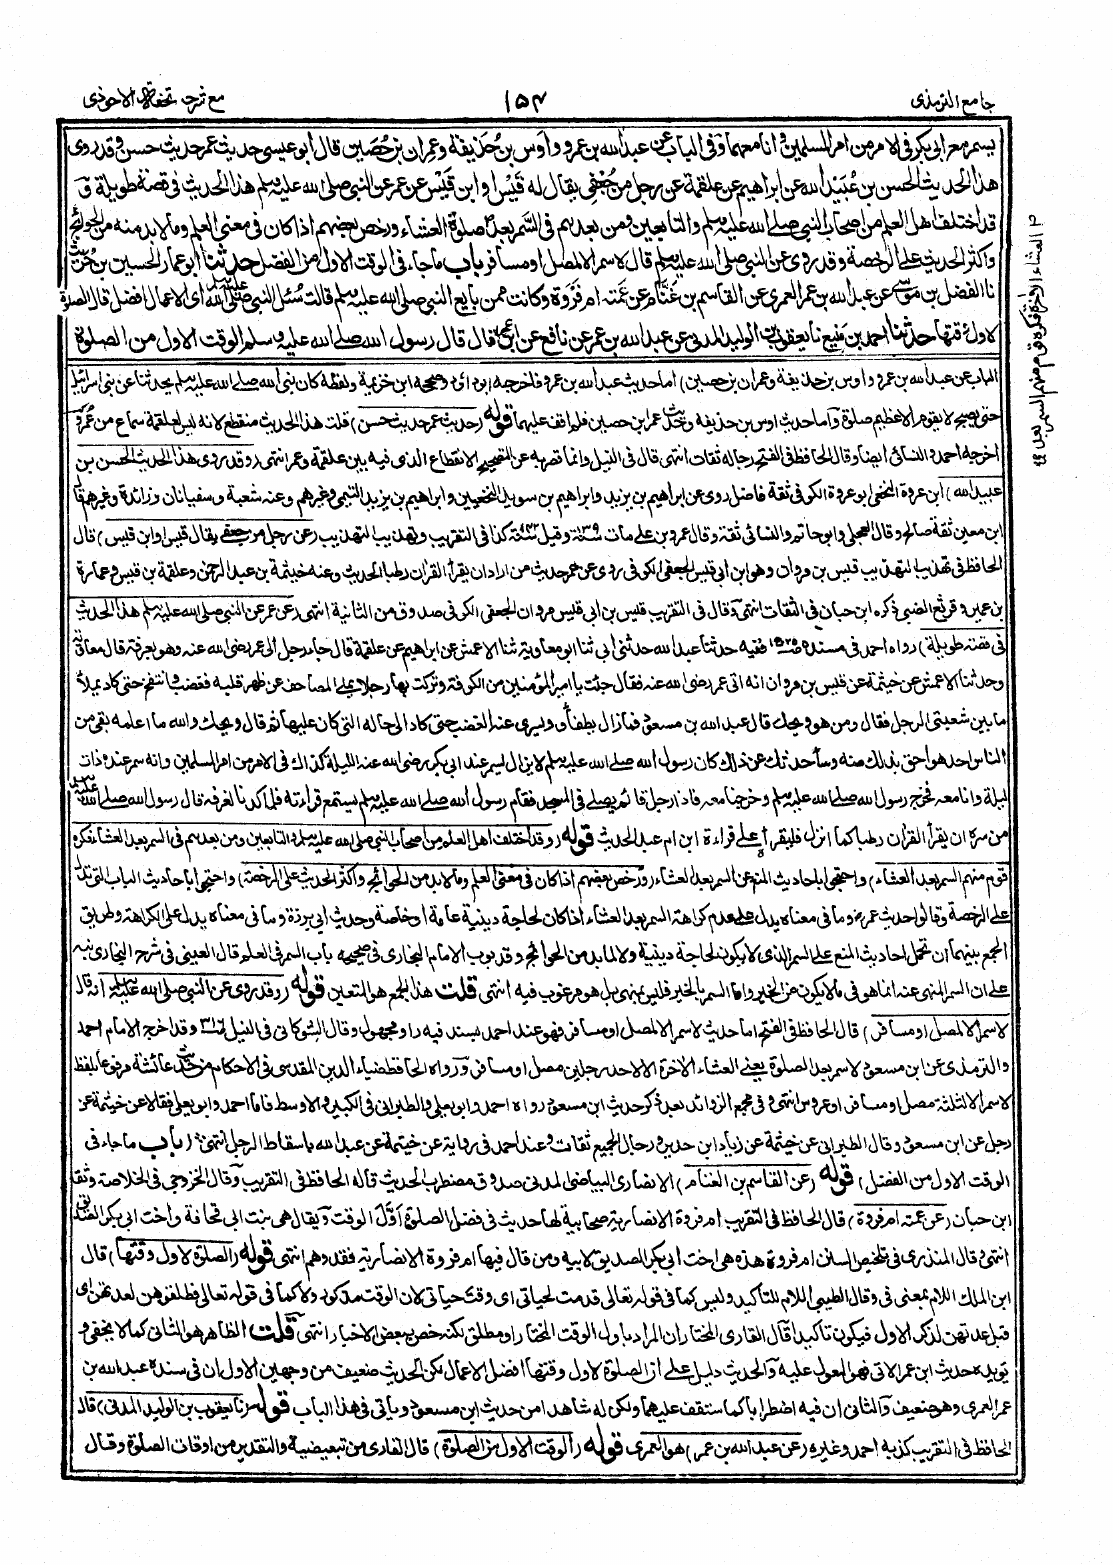 جامع الترمذي
١٥٤
مع شرحه تحفة الاحوذي
يسمر مع ابي بكر في الامر من امر المسلمين وانا معهما وفي الباب عن عبد الله بن عمرو واوس بن حذيفة وعمران بن حصين قال ابو عيسى حديث عمر حديث حسن وقد روى
هذا الحديث الحسن بن عبيد الله عن ابراهيم عن علقمة عن رجل من جعفي يقال له قيس او ابن قيس عن عمر عن النبي صلى الله عليه وسلم هذا الحديث في قصة طويلة و
قد اختلف اهل العلم من اصحاب النبي صلى الله عليه وسلم والتابعين ومن بعدهم في السمر بعد صلوة العشاء ورخص بعضهم اذا كان في معنى العلم وما لا بد منه من الحوائج
واكثر الحديث على الرخصة وقد روى عن النبي صلى الله عليه وسلم قال لا سمر الا لمصل او مسافر باب ما جاء في الوقت الاول من الفضل حدثنا ابو عمار الحسين بن حريث
نا الفضل بن موسى عن عبد الله بن عمر العمري عن القاسم بن غنام عن عمته ام فروة وكانت ممن بايع النبي صلى الله عليه وسلم قالت سئل النبي صلى الله عليه وسلم اى الاعمال افضل قال الصلوة
لاول وقتها حدثنا احمد بن منيع نا يعقوب بن الوليد المدني عن عبد الله بن عمر عن نافع عن ابن عمر قال قال رسول الله صلى الله عليه وسلم الوقت الاول من الصلوة
الباب عن عبد الله بن عمرو واوس بن حذيفة وعمران بن حصين) اما حديث عبد الله بن عمرو فاخرجه ابو داؤد وصححه ابن خزيمة ولفظه كان نبي الله صلى الله عليه وسلم يحدثنا عن بني اسرائيل
حتى يصبح لا يقوم الا لعظيم صلوة واما حديث اوس بن حذيفة وحديث عمران بن حصين فلم اقف عليهما قوله (حديث عمر حديث حسن) قلت هذا الحديث منقطع لانه ليس لعلقمة سماع من عمر و
اخرجه احمد والنسائي ايضا وقال الحافظ في الفتح رجاله ثقات انتهى قال في النيل وانما قصر به عن التصحيح الانقطاع الذي فيه بين علقمة وعمر انتهى (وقد روى هذا الحديث الحسن بن
عبيد الله) ابن عروة النخعي ابو عروة الكوفي ثقة فاضل روى عن ابراهيم بن يزيد وابراهيم بن سويد النخعيين وابراهيم بن يزيد التيمي وغيرهم وعنه شعبة وسفيانان وزائدة وغيرهم قال
ابن معين ثقة صالح وقال العجلي وابو حاتم والنسائي ثقة وقال عمرو بن علي مات ١٣٩ وقيل ١٤٢ كذا في التقريب وتهذيب التهذيب (عن رجل من جعفي يقال قيس او ابن قيس) قال
الحافظ في تهذيب التهذيب قيس بن مروان وهو ابن ابي قيس الجعفي الكوفي روى عن عمر حديث من اراد ان يقرأ القرآن رطبا الحديث وعنه خيثمة بن عبد الرحمن وعلقمة بن قيس وعمارة
بن عمير وقرثع الضبي ذكره ابن حبان في الثقات انتهى وقال في التقريب قيس بن ابي قيس مروان الجعفي الكوفي صدوق من الثانية انتهى (عن عمر عن النبي صلى الله عليه وسلم هذا الحديث
في قصة طويلة) رواه احمد في مسنده ففيه حدثنا عبد الله حدثني ابي ثنا ابو معاوية ثنا الاعمش عن ابراهيم عن علقمة قال جاء رجل الى عمر رضى الله عنه وهو بعرفة قال معاوية
وحدثنا الاعمش عن خيثمة عن قيس بن مروان انه اتى عمر رضى الله عنه فقال جئت يا امير المؤمنين من الكوفة وتركت بها رجلا يملي المصاحف عن ظهر قلبه فغضب وانتفخ حتى كاد يملأ
ما بين شعبتي الرحل فقال ومن هو ويحك قال عبد الله بن مسعود فما زال يطفأ ويسرى عنه الغضب حتى كاد الى حاله التي كان عليها ثم قال ويحك والله ما اعلمه بقى من
الناس احد هو احق بذلك منه وسأحدثك عن ذلك كان رسول الله صلى الله عليه وسلم لا يزال يسمر عند ابي بكر رضى الله عنه الليلة كذاك في الامر من امر المسلمين وانه سمر عنده ذات
ليلة وانا معه فخرج رسول الله صلى الله عليه وسلم وخرجنا معه فاذا رجل قائم يصلي في المسجد فقام رسول الله صلى الله عليه وسلم يستمع قراءته فلما كدنا نعرفه قال رسول الله صلى الله عليه وسلم
من سره ان يقرأ القرآن رطبا كما انزل فليقرأ على قراءة ابن ام عبد الحديث قوله (وقد اختلف اهل العلم من اصحاب النبي صلى الله عليه وسلم والتابعين ومن بعدهم في السمر بعد العشاء فكره
قوم منهم السمر بعد العشاء) واحتجوا باحاديث المنع عن السمر بعد العشاء (ورخص بعضهم اذا كان في معنى العلم وما لا بد من الحوائج واكثر الحديث على الرخصة) واحتجوا باحاديث الباب التي تدل
على الرخصة وقالوا حديث عمر وما في معناه يدل على عدم كراهة السمر بعد العشاء اذا كان لحاجة دينية عامة او خاصة وحديث ابي برزة وما في معناه يدل على الكراهة وطريق
الجمع بينهما ان تحمل احاديث المنع على السمر الذي لا يكون لحاجة دينية ولا لما بد من الحوائج وقد بوب الامام البخاري في صحيحه باب السمر في العلم قال العيني في شرح البخاري نبه
على ان السمر المنهى عنه انما هو في ما لا يكون من الخير واما السمر بالخير فليس بمنهى بل هو مرغوب فيه انتهى قلت هذا الجمع هو المتعين قوله (وقد روى عن النبي صلى الله عليه وسلم انه قال
لا سمر الا لمصل او مسافر) قال الحافظ في الفتح اما حديث لا سمر الا لمصل او مسافر فهو عند احمد بسند فيه راو مجهول وقال الشوكاني في النيل وقد اخرج الامام احمد
والترمذي عن ابن مسعود لا سمر بعد الصلوة يعني العشاء الاخرة الا لاحد رجلين مصل او مسافر ورواه الحافظ ضياء الدين المقدسي في الاحكام من حديث عائشة مرفوعا بلفظ
لا سمر الا لثلثة مصل او مسافر او عروس انتهى وفي مجمع الزوائد بعد ذكر حديث ابن مسعود رواه احمد وابو يعلى والطبراني في الكبير والاوسط فاما احمد وابو يعلى فقالا عن خيثمة عن
رجل عن ابن مسعود وقال الطبراني عن خيثمة عن زياد ابن حدير ورجال الجميع ثقات وعند احمد في رواية عن خيثمة عن عبد الله باسقاط الرجل انتهى (باب ما جاء في
الوقت الاول من الفضل) قوله (عن القاسم بن الغنام) الانصاري البياضي المدني صدوق مضطرب الحديث قاله الحافظ في التقريب وقال الخزرجي في الخلاصة وثقه
ابن حبان (عن عمته ام فروة) قال الحافظ في التقريب ام فروة الانصارية صحابية لها حديث في فضل الصلوة اول الوقت ويقال هي بنت ابي قحافة واخت ابي بكر الصديق
انتهى وقال المنذري في تلخيص السنن ام فروة هذه هي اخت ابي بكر الصديق لابيه ومن قال فيها ام فروة الانصارية فقد وهم انتهى قوله (الصلوة لاول وقتها) قال
ابن الملك اللام بمعنى في وقال الطيبي اللام للتأكيد وليس كما في قوله تعالى قدمت لحياتي اى وقت حياتي لان الوقت مذكور ولا كما في قوله تعالى فطلقوهن لعدتهن اى
قبل عدتهن لذكر الاول فيكون تاكيدا قال القاري المختار ان المراد باول الوقت المختار او مطلق لكنه خص ببعض الاخبار انتهى قلت الظاهر هو الثاني كما لا يخفى و
يؤيده حديث ابن عمر الاتي فهو المعول عليه والحديث دليل على ان الصلوة لاول وقتها افضل الاعمال لكن الحديث ضعيف من وجهين الاول ان في سنده عبد الله بن
عمر العمري وهو ضعيف والثاني ان فيه اضطرابا كما ستقف عليهما ولكن له شاهدا من حديث ابن مسعود ويأتي في هذا الباب قوله (نا يعقوب بن الوليد المدني) قال
الحافظ في التقريب كذبه احمد وغيره (عن عبد الله بن عمر) هو العمري قوله (الوقت الاول من الصلوة) قال القاري من تبعيضية والتقدير من اوقات الصلوة وقال
العشاء الاخرة فكره قوم منهم السمر بعد